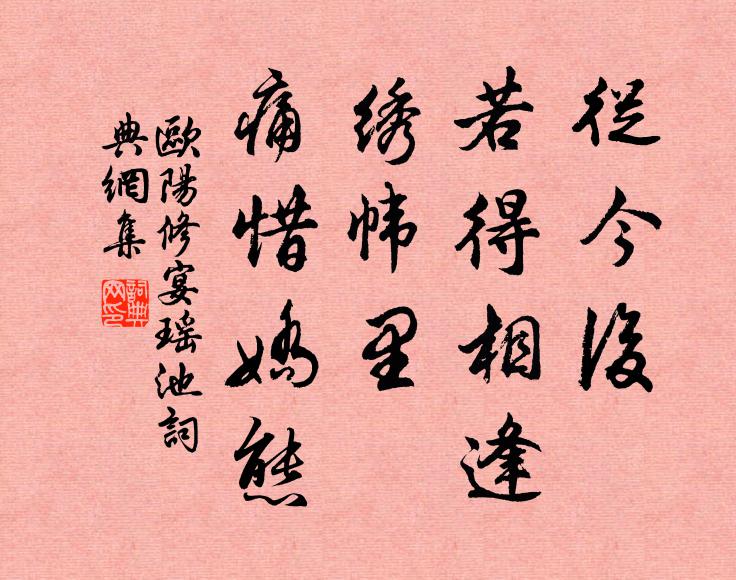 從今後
若得相逢
绣帏里
痛惜嬌態
歐陽修宴瑶池詞
典網集
詞典
网印